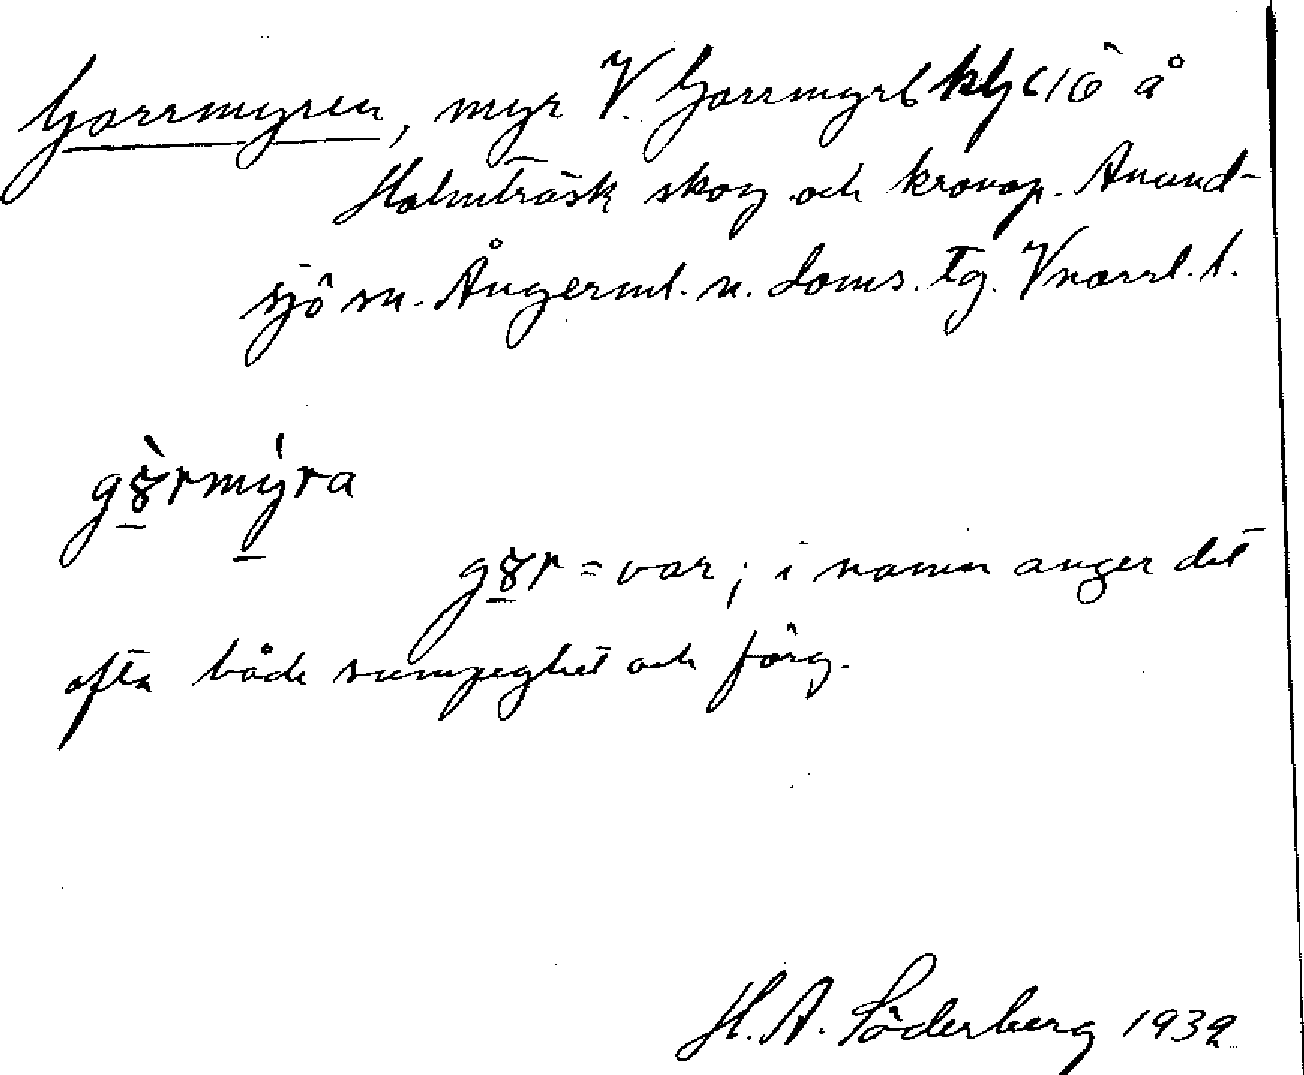 Gorrmyren, myr V. Gorrmyrb
Holmträsk skog och kronop. Anund-
sjö sn. Ångerml. n. doms. tg. Vnorrl. l.
gȣ̀rmýra
gȣr = var; i namn anger det
ofta både sumpighet och färg.
H. A. Söderberg 1932